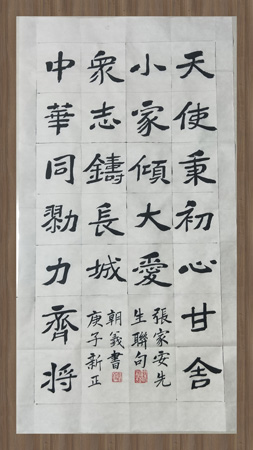 天使秉初心甘舍
小家傾大愛
張家安先
生聯句
中華同勠力齊將
衆志鑄長城
朝義書
庚子新正